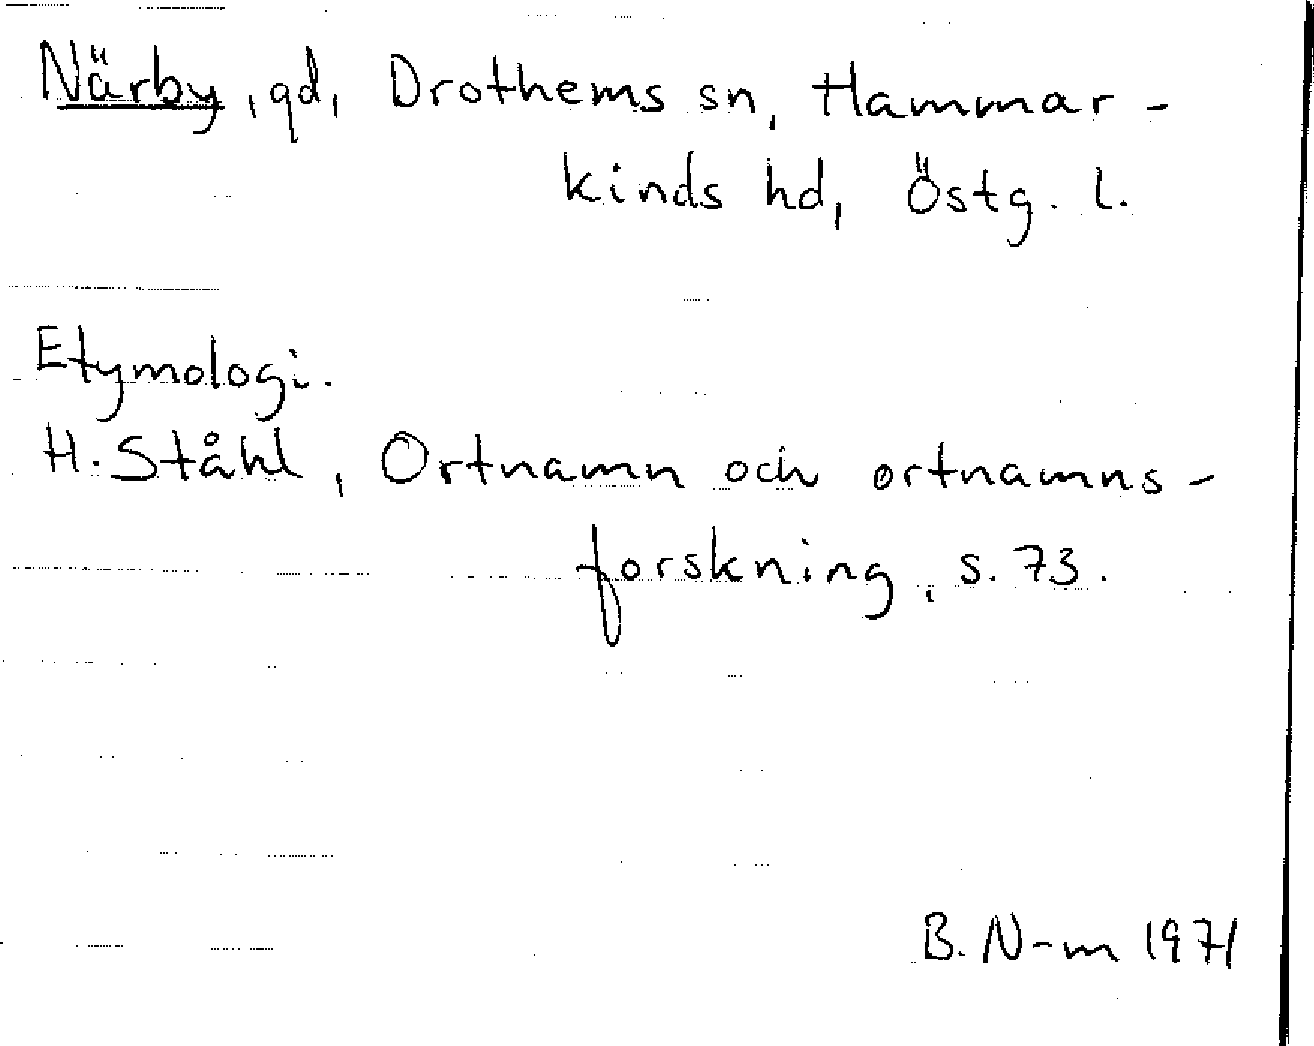 Närby, gd, Drothems sn, Hammar-
kinds hd, Östg. l.
Etymologi.
H. Ståhl, Ortnamn och ortnamns-
forskning, s. 73.
B. N-m 1971